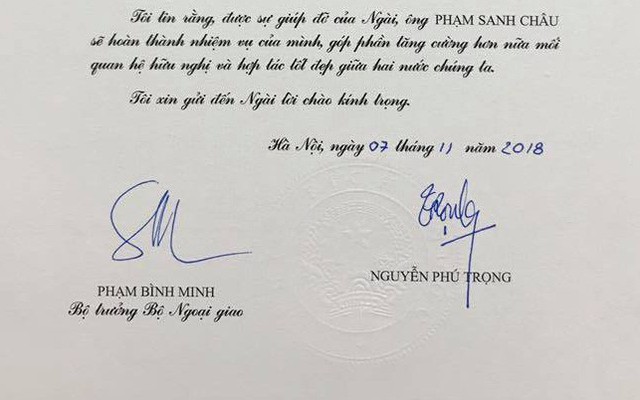 Tôi tin rằng, được sự giúp đỡ của Ngài, ông PHẠM SANH CHÂU
sẽ hoàn thành nhiệm vụ của mình, góp phần tăng cường hơn nữa mối
quan hệ hữu nghị và hợp tác tốt đẹp giữa hai nước chúng ta.
Tôi xin gửi đến Ngài lời chào kính trọng.
Hà Nội, ngày 07 tháng 11 năm 2018
PHẠM BÌNH MINH
Bộ trưởng Bộ Ngoại giao
NGUYỄN PHÚ TRỌNG